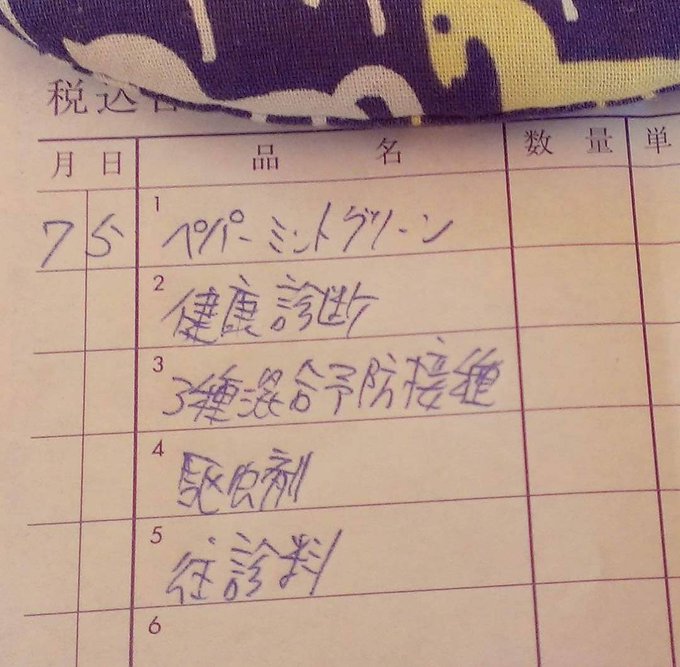 税込
月 日 品 名 数 量 単
7 5 1 ペパーミントグリーン
2 健康診断
3 3種混合予防接種
4 駆虫剤
5 往診料
6